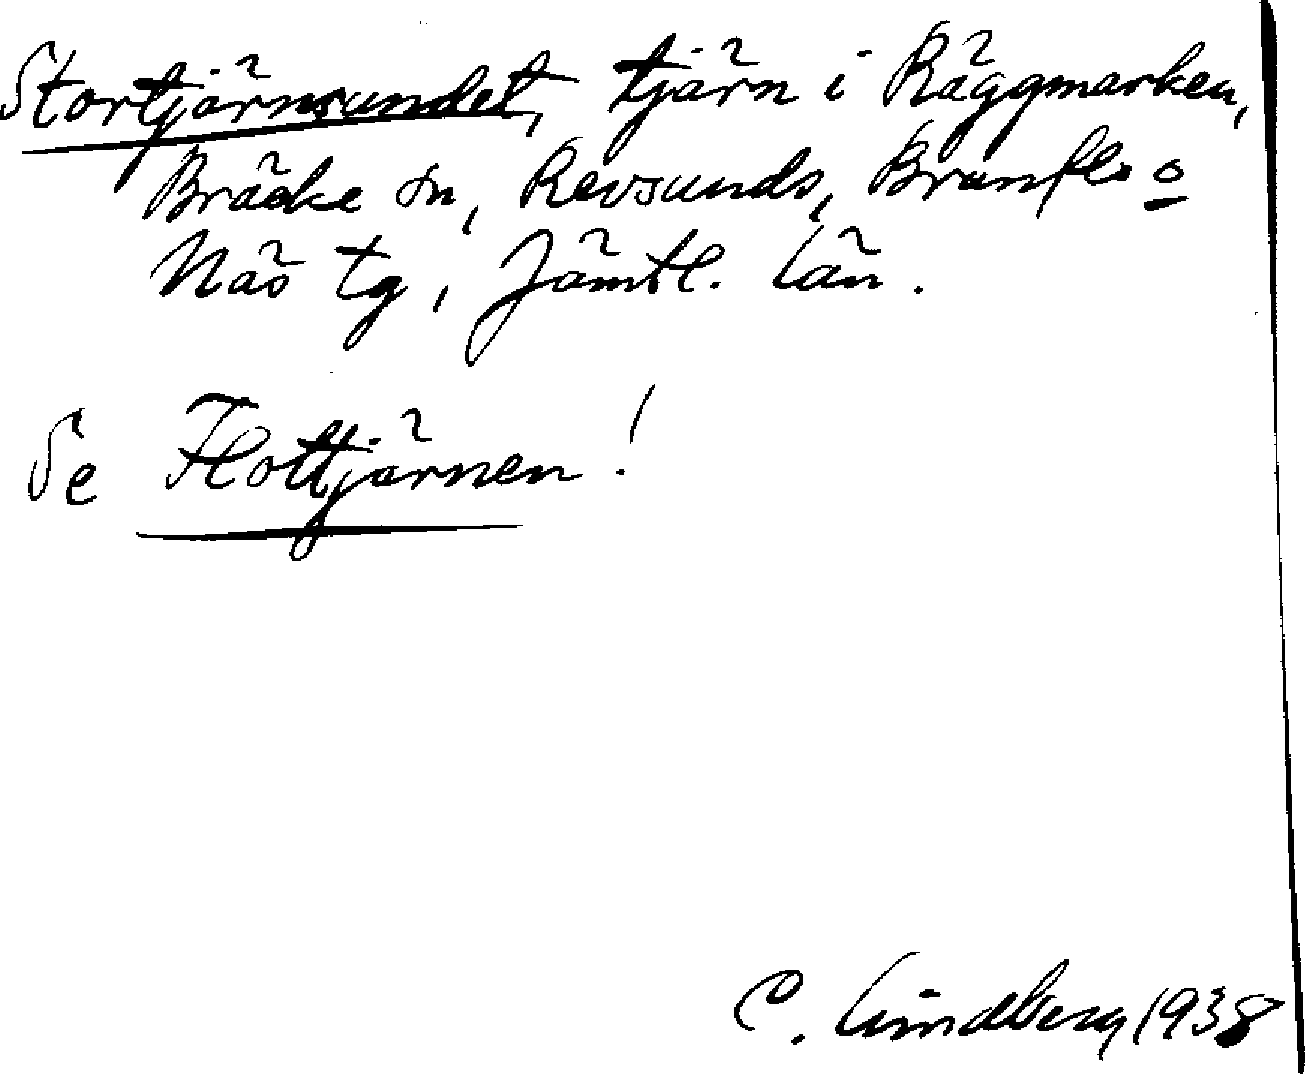 Stortjärnsundet, tjärn i Räggmarken,
Bräcke sn, Revsunds, Brunflo o
Näs tg, Jämtl. län.
Se Flottjärnen!
C. Lindberg 1938